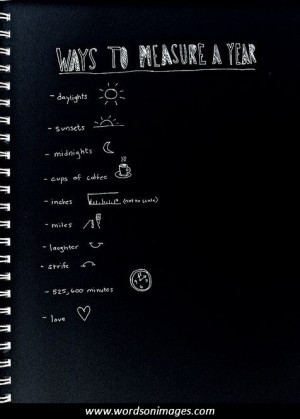 WAYS TO MEASURE A YEAR
- daylights
- sunsets
- midnights
- cups of coffee
- inches (not to scale)
- miles
- laughter
- strife
- 525,600 minutes
- love
www.wordsonimages.com